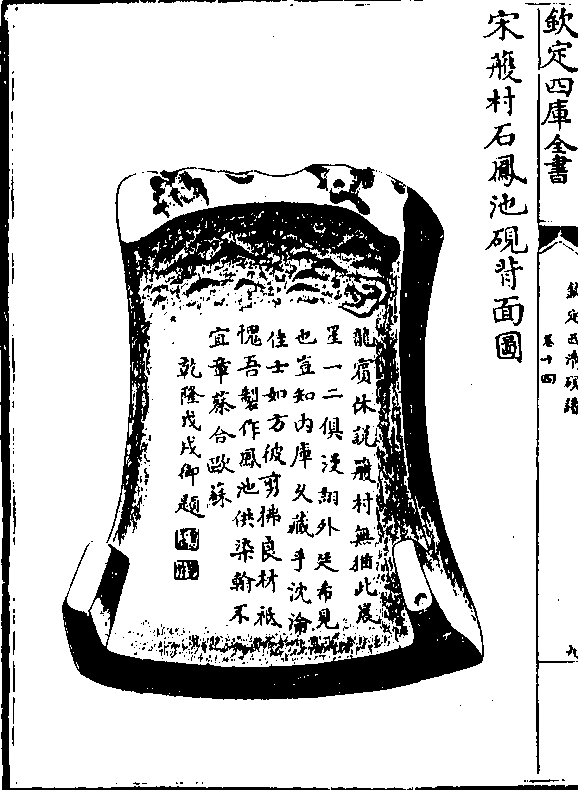 欽定四庫全書
欽定西清硯譜
卷十四
九
宋村石鳳池硯背面圖
龍賓休說村無猶此晨
星一二俱漫詡外廷希見
也豈知内庫久藏乎沈淪
佳士如方彼剪拂良材祗
愧吾製作鳳池供染翰不
宜章蔡合歐蘇
乾隆戊戌御題